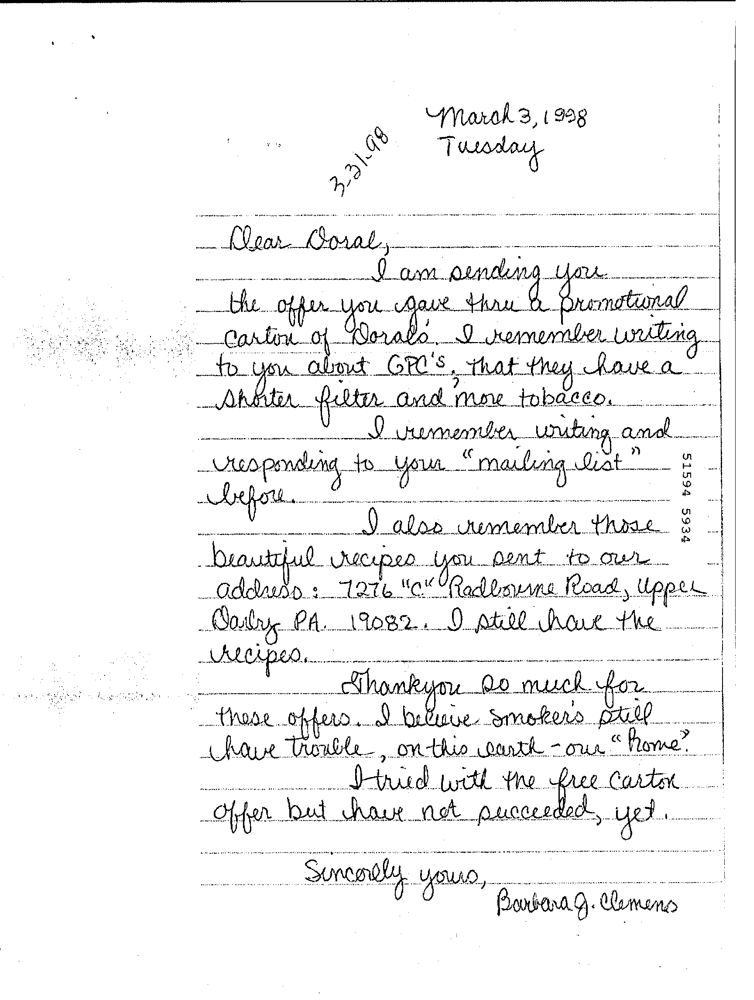 March 3, 1998
Tuesday
3-31-98
Dear Doral,
I am sending you
the offer you gave thru a promotional
carton of Dorals'. I remember writing
to you about GPC's, that they have a
shorter filter and more tobacco.
I remember writing and
responding to your "mailing list"
before.
I also remember those
beautiful recipes you sent to our
address: 7276 "C" Radbourne Road, Upper
Darby PA. 19082. I still have the
recipes.
Thankyou so much for
these offers. I believe smoker's still
have trouble, on this earth - our "home".
I tried with the free carton
offer but have not succeeded, yet.
Sincerely yours,
Barbara J. Clemens
51594 5934